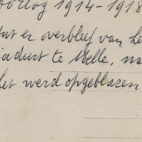 oorlog 1914-1918
er overbleef van he
te Melle, na
werd opgeblazen